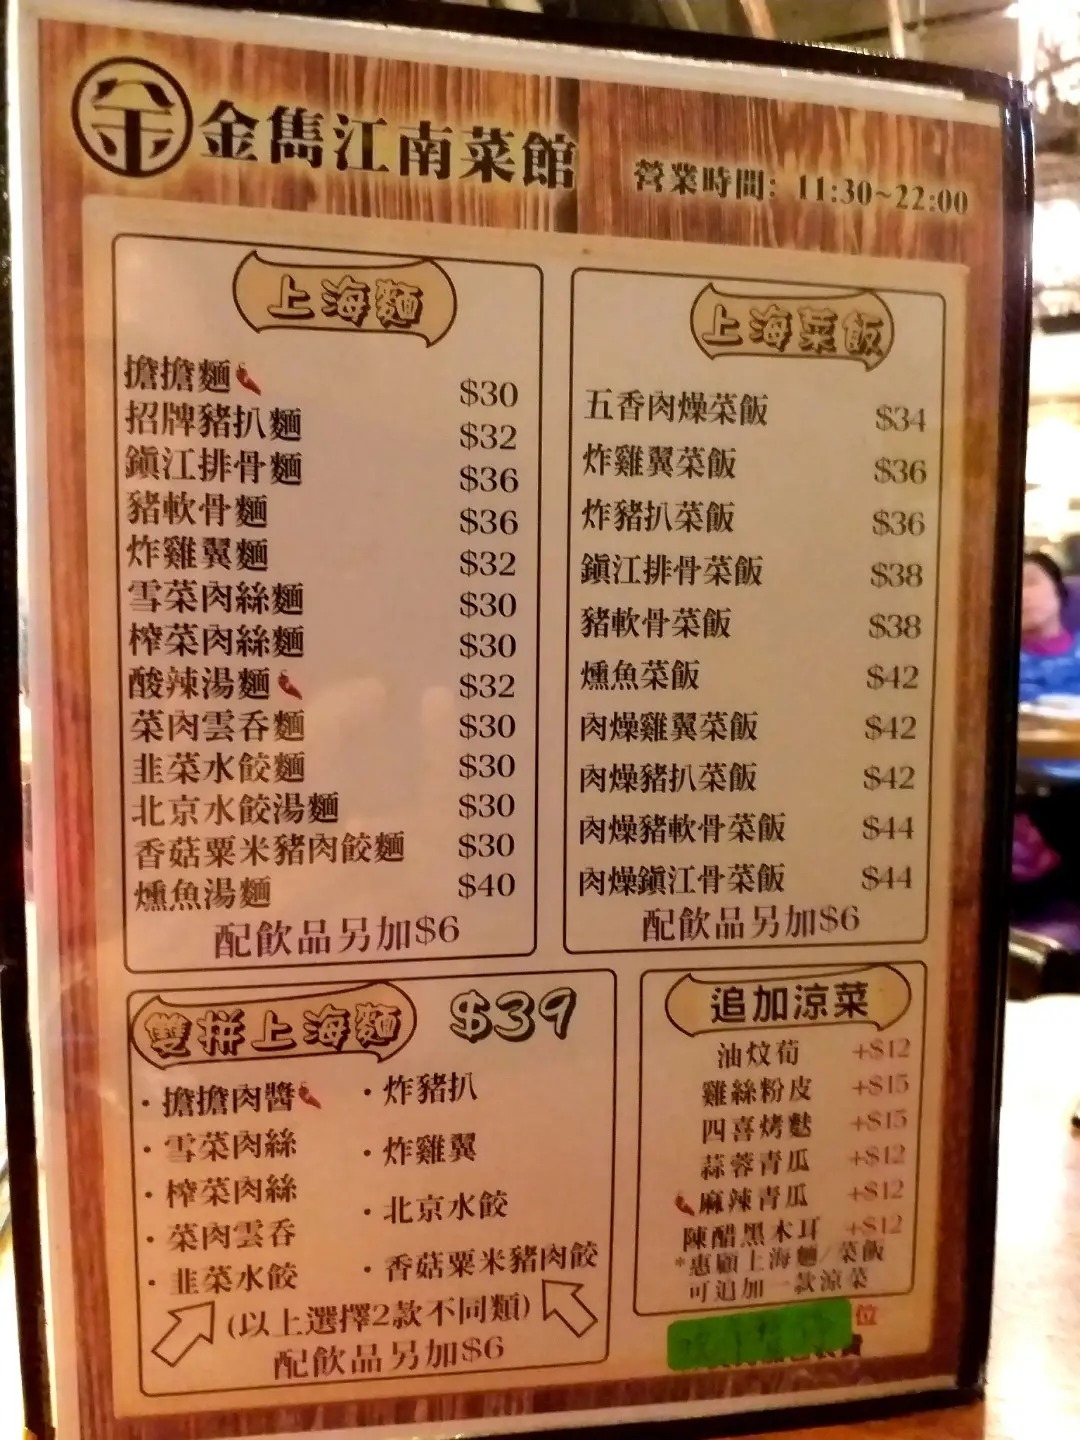 金
金雋江南菜館
營業時間：11:30~22:00
上海麵
擔擔麵 $30
招牌豬扒麵 $32
鎭江排骨麵 $36
豬軟骨麵 $36
炸雞翼麵 $32
雪菜肉絲麵 $30
榨菜肉絲麵 $30
酸辣湯麵 $32
菜肉雲吞麵 $30
韭菜水餃麵 $30
北京水餃湯麵 $30
香菇粟米豬肉餃麵 $30
燻魚湯麵 $40
配飲品另加$6
上海菜飯
五香肉燥菜飯 $34
炸雞翼菜飯 $36
炸豬扒菜飯 $36
鎭江排骨菜飯 $38
豬軟骨菜飯 $38
燻魚菜飯 $42
肉燥雞翼菜飯 $42
肉燥豬扒菜飯 $42
肉燥豬軟骨菜飯 $44
肉燥鎭江骨菜飯 $44
配飲品另加$6
雙拼上海麵 $39
·擔擔肉醬
·雪菜肉絲
·榨菜肉絲
·菜肉雲吞
·韭菜水餃
·炸豬扒
·炸雞翼
·北京水餃
·香菇粟米豬肉餃
(以上選擇2款不同類)
配飲品另加$6
追加涼菜
油炆荀 +$12
雞絲粉皮 +$15
四喜烤麩 +$15
蒜蓉青瓜 +$12
麻辣青瓜 +$12
陳醋黑木耳 +$12
*惠顧上海麵/菜飯
可追加一款涼菜
位